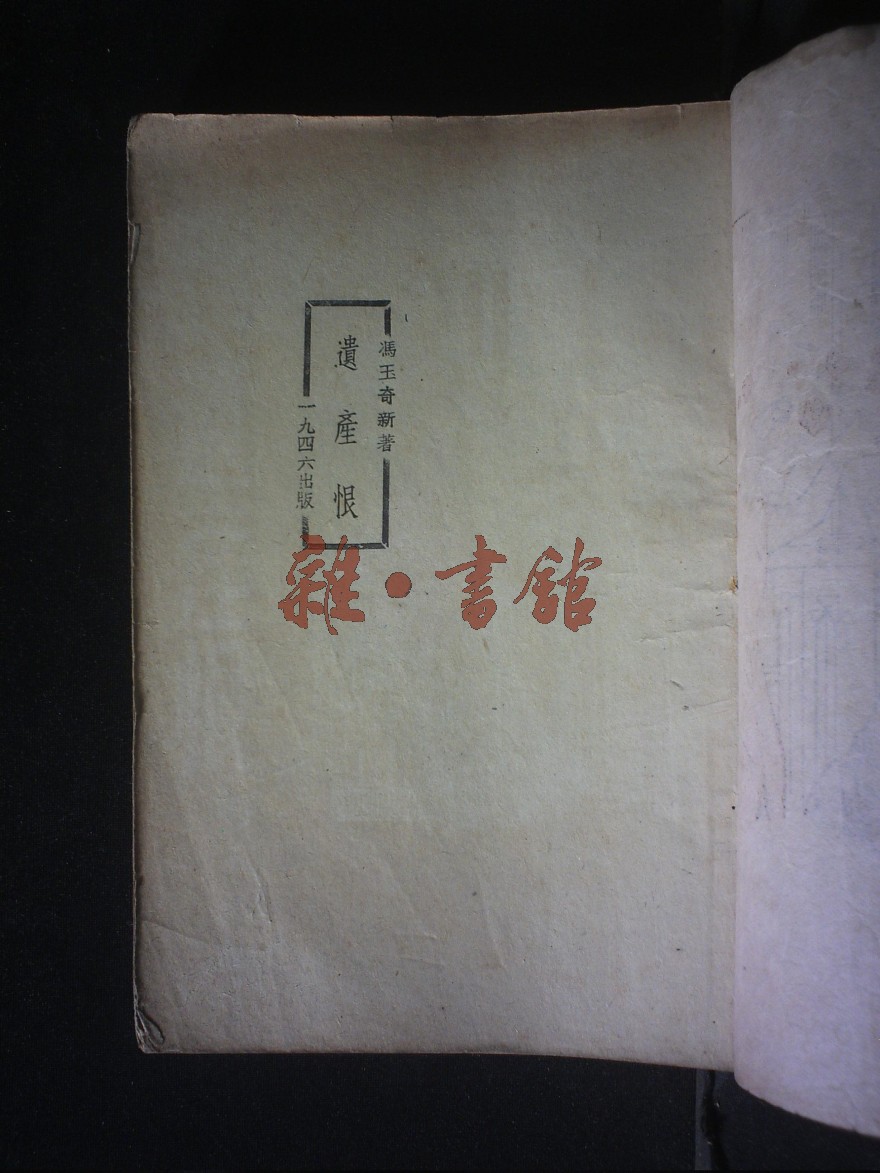 馮玉奇新著
遺產恨
一九四六出版
雜·書館